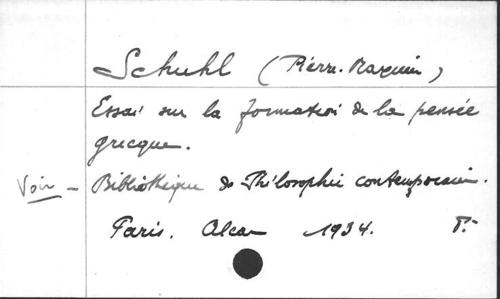 Schuhl (Pierre-Maxime)
Essai sur la formation de la pensée
grecque.
Voir - Bibliothèque de Philosophie contemporaine.
Paris. Alcan 1934. P.-